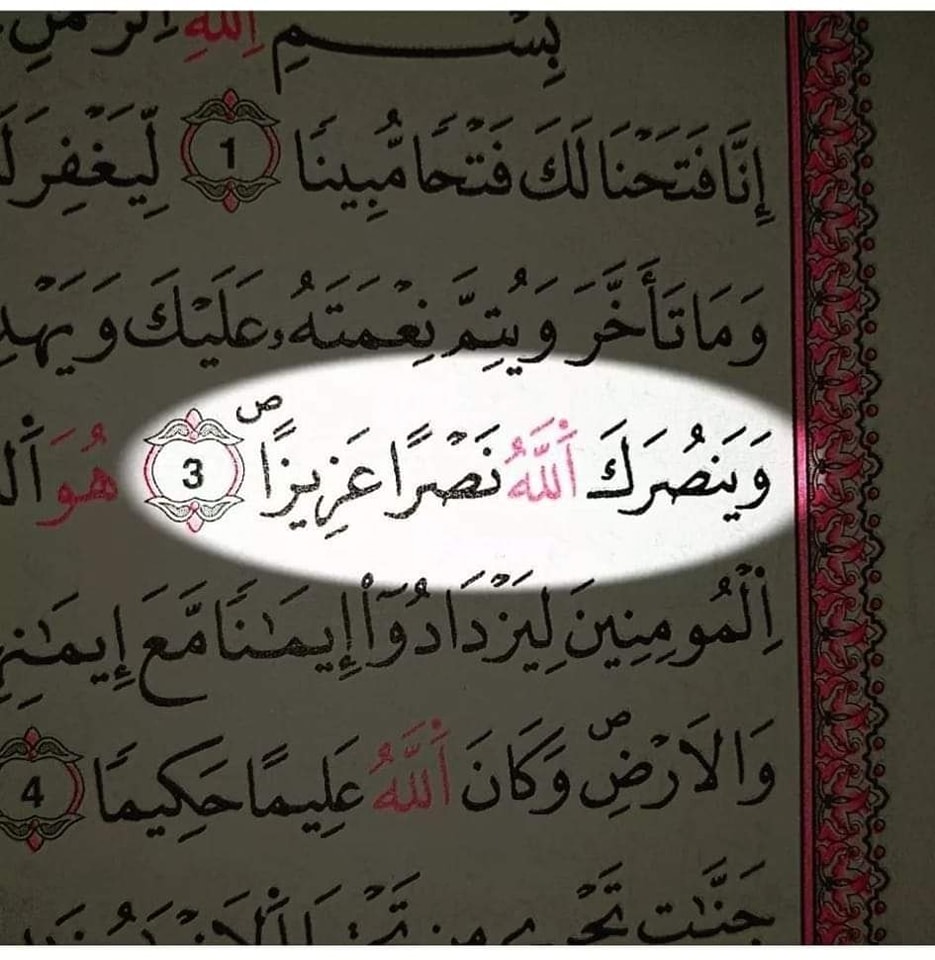 بِسْمِ اِ۬للَّهِ اِ۬لرَّحْمَٰنِ
إِنَّا فَتَحْنَا لَكَ فَتْحاٗ مُّبِيناٗ 1 لِّيَغْفِرَ
وَمَا تَأَخَّرَ وَيُتِمَّ نِعْمَتَهُۥ عَلَيْكَ وَيَهْدِ
وَيَنصُرَكَ اَ۬للَّهُ نَصْراً عَزِيزاًۖ 3 هُوَ
اِ۬لْمُومِنِينَ لِيَزْدَادُوٓاْ إِيمَٰناٗ مَّعَ إِيمَٰنِهِ
وَالَارْضِۖ وَكَانَ اَ۬للَّهُ عَلِيماً حَكِيماً 4
جَنَّٰتٖ تَجْرِے مِن تَحْتِهَا اَ۬لَانْهَٰرُ